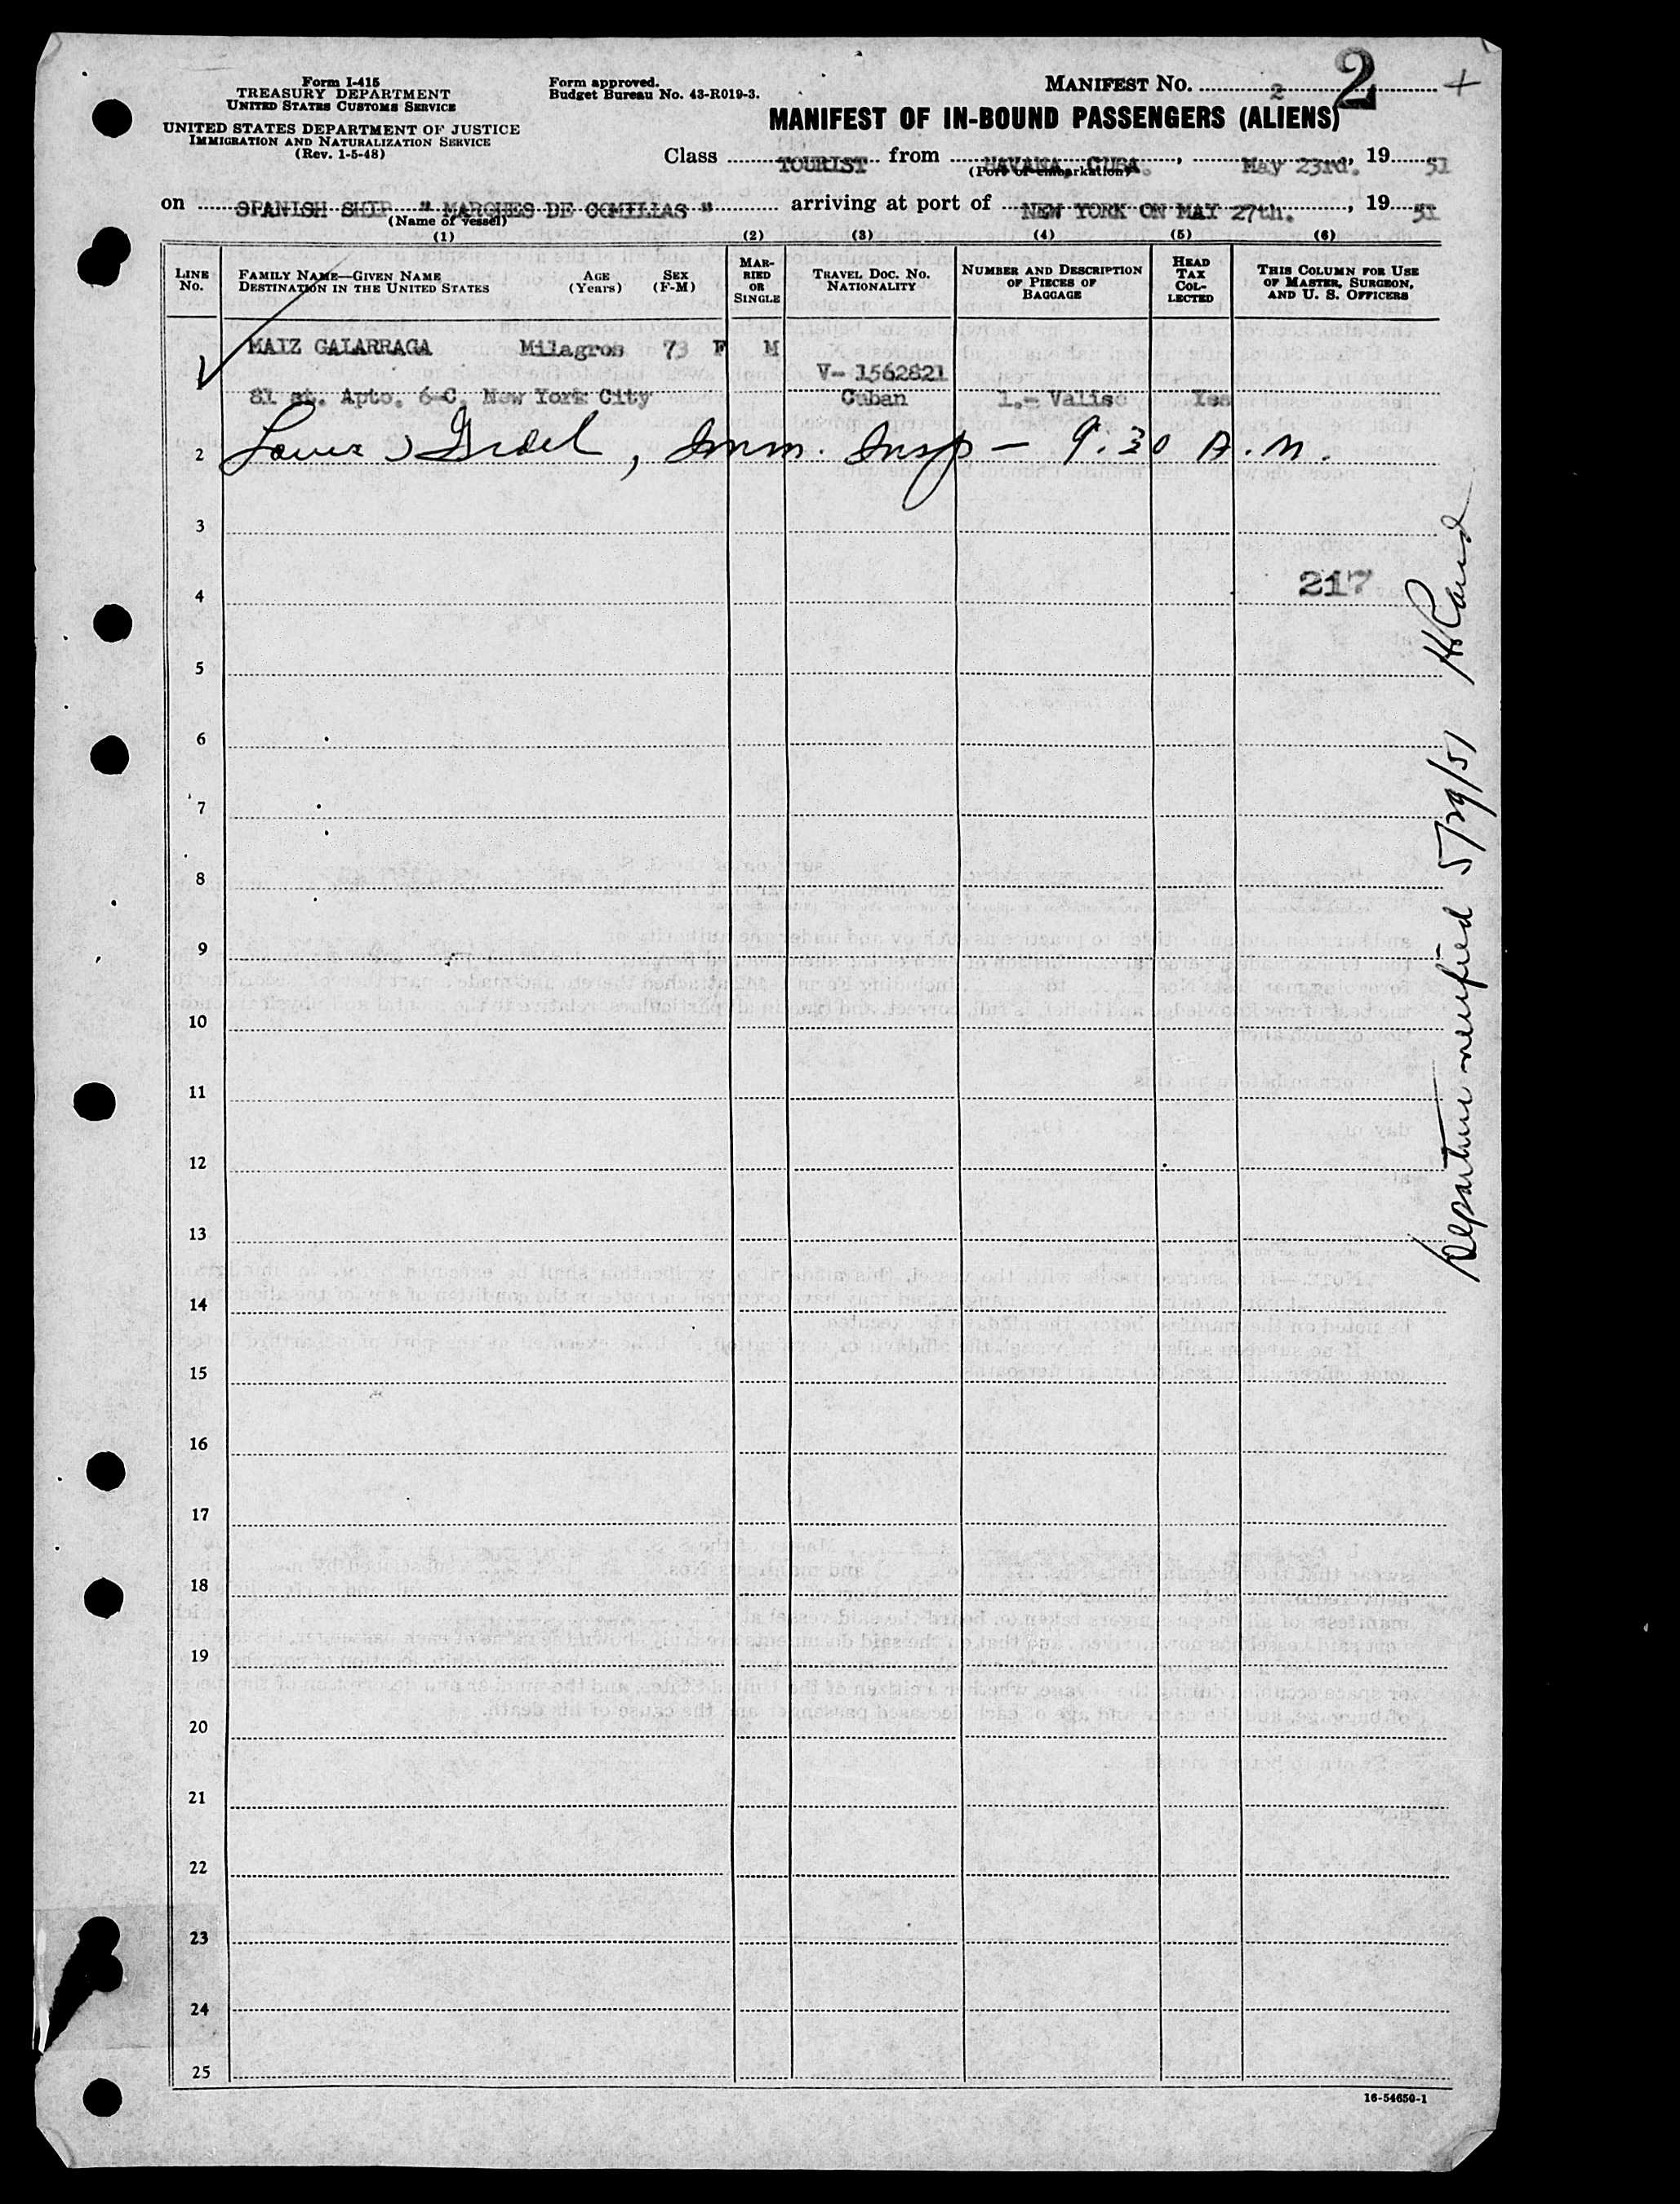 Form I-415
TREASURY DEPARTMENT
UNITED STATES CUSTOMS SERVICE
UNITED STATES DEPARTMENT OF JUSTICE
IMMIGRATION AND NATURALIZATION SERVICE
(Rev. 1-5-48)
Form approved.
Budget Bureau No. 43-R019-3.
MANIFEST No. 2 2 +
MANIFEST OF IN-BOUND PASSENGERS (ALIENS)
Class TOURIST from HAVANA, CUBA. , May 23rd. , 19 51
(Port of embarkation)
on SPANISH SHIP " MARQUES DE COMILLAS " arriving at port of NEW YORK ON MAY 27th. , 19 51
(Name of vessel)
(1) (2) (3) (4) (5) (6)
LINE No.
FAMILY NAME—GIVEN NAME AGE SEX
DESTINATION IN THE UNITED STATES (Years) (F-M)
MAR-RIED OR SINGLE
TRAVEL DOC. NO. NATIONALITY
NUMBER AND DESCRIPTION OF PIECES OF BAGGAGE
HEAD TAX COL-LECTED
THIS COLUMN FOR USE OF MASTER, SURGEON, AND U. S. OFFICERS
MAIZ GALARRAGA Milagros 73 F M
V- 1562821
81 st. Apto. 6-C. New York City Cuban 1.- Valise Yes
2 , Imm. Insp — 9.30 A.M.
3
217
4
5
6
7
8
9
10
11
12
13
14
15
16
17
18
19
20
21
22
23
24
25
16-54650-1
Departure verified 5/29/51